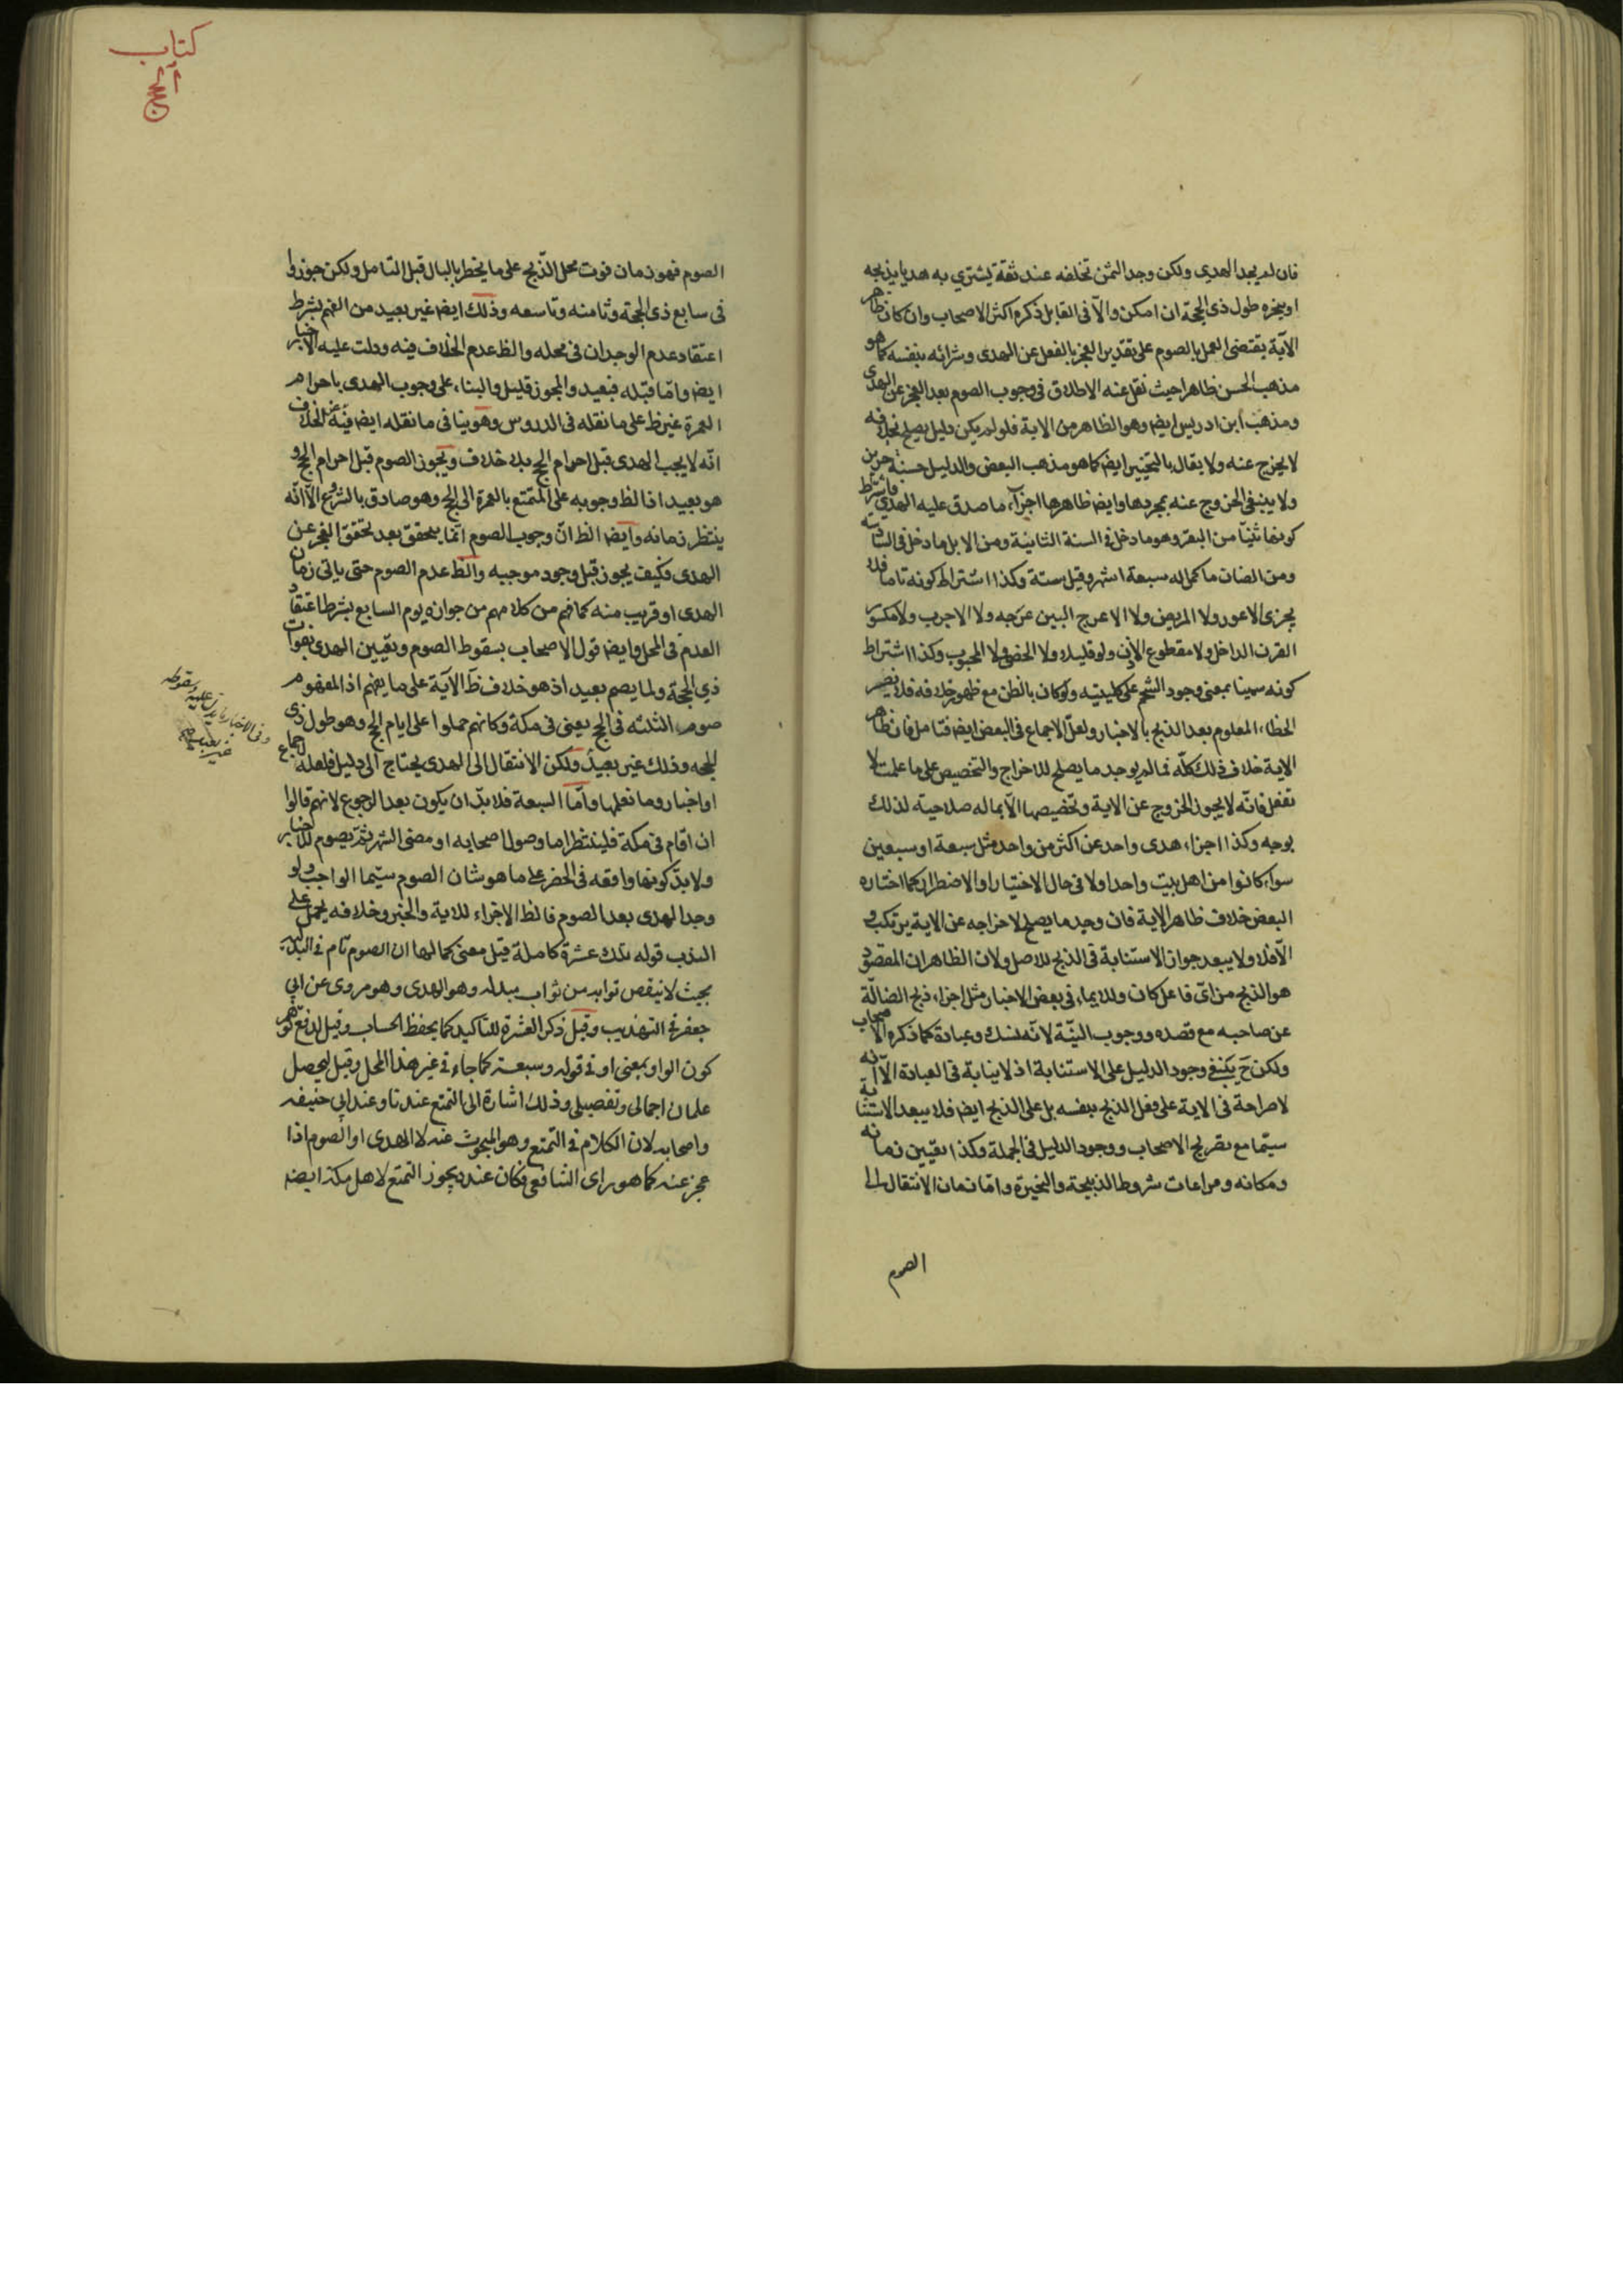 فان لم يجد الهدي ولكن وجد الثمن تخلفه عند ثقة يشتري به هديا يذبحه
او ينحره طول ذي الحجة ان امكن والآ في القابل ذكره اكثر الاصحاب وان كان ظاهر
الآية يقتضي العمل بالصوم على تقدير العجز بالفعل عن الهدى وشرائه بنفسه كما هو
مذهب الحسن ظاهرا حيث نقل عنه الاطلاق في وجوب الصوم بعد العجز عن الهدى
ومذهب ابن ادريس ايضا وهو الظاهر من الاية فلو لم يكن دليل يصلح بخلافه
لا يخرج عنه ولا يقال بالتخيير ايضا كما هو مذهب البعض والدليل حسنة حريز
ولا ينبغي الخروج عنه بمجردها وايضا ظاهرها اجزاء ما صدق عليه الهدي فاشتراط
كونها ثنيا من البقر وهو ما دخل في السنة الثانية ومن الابل ما دخل في السادسة
ومن الضان ما كمل له سبعة اشهر وقيل ستة وكذا اشتراط كونه تاما فلا
يجزى الاعور ولا المريض ولا الاعرج البين عرجه ولا الاجرب ولا مكسور
القرن الداخل ولا مقطوع الاذن ولو قليلا ولا الخصي ولا المجبوب وكذا اشتراط
كونه سمينا بمعنى وجود الشحم على كليتيه ولو كان بالظن مع ظهور خلافه فلا يضر
الخطاء المعلوم بعد الذبح بالاخبار ولعل الاجماع في البعض ايضا فتامل فان ظاهر
الاية خلاف ذلك كله فما لم يوجد ما يصلح للاخراج والتخصيص على ما علمت لا
تفعل فانه لا يجوز الخروج عن الاية وتخصيصها الآ بما له صلاحية لذلك
بوجه وكذا اجزاء هدى واحد عن اكثر من واحد مثل سبعة او سبعين
سواء كانوا من اهل بيت واحد اولا في حال الاختيار او الاضطرار كما اختاره
البعض خلاف ظاهر الاية فان وجد ما يصلح لاخراجه عن الاية يرتكب و
الآ فلا ولا يبعد جواز الاستنابة في الذبح للاصل ولان الظاهر ان المقصود
هو الذبح من اي فاعل كان وللايماء في بعض الاخبار مثل اجزاء ذبح الضالة
عن صاحبه مع قصده ووجوب النية لانه نسك وعبادة كما ذكره الاصحاب
ولكن ح يكفي وجود الدليل على الاستنابة اذ لا نيابة في العبادة الآ انه
لا صراحة في الاية على فعل الذبح بنفسه بل على الذبح ايضا فلا يبعد الاستنابة
سيما مع تصريح الاصحاب ووجود الدليل في الجملة وكذا تعيين زمانه
ومكانه ومراعات شروط الذبيحة والنحيرة واما زمان الانتقال الى
الصوم
كتاب
الحج
الصوم فهو زمان فوت محل الذبح على ما يخطر بالبال قبل التامل ولكن جوزوا
في سابع ذي الحجة وثامنه وتاسعه وذلك ايضا غير بعيد من الفهم بشرط
اعتقاد عدم الوجدان في محله والظ عدم الخلاف فيه ودلت عليه الاخبار
ايضا واما قبله فبعيد والمجوز قليل والبناء على وجوب الهدى باحرام
العمرة غير ظ على ما نقله في الدروس وهو ينافي ما نقله ايضا فيه عن الخلاف
انه لا يجب الهدى قبل احرام الحج بلا خلاف ويجوز الصوم قبل احرام الحج و
هو بعيد اذ الظ وجوبه على المتمتع بالعمرة الى الحج وهو صادق بالشروع الآ انه
ينتظر زمانه وايضا الظ ان وجوب الصوم انما يتحقق بعد تحقق العجز عن
الهدى فكيف يجوز قبل وجود موجبه والظ عدم الصوم حتى ياتي زمان
الهدى او قريب منه كما فهم من كلامهم من جوازه يوم السابع بشرط اعتقاد
العدم في المحل وايضا قول الاصحاب بسقوط الصوم وتعيين الهدى بفوات
ذي الحجة ولما يصم بعيد اذ هو خلاف ظ الآية على ما يفهم اذ المفهوم
صوم الثلثه في الحج يعني في مكة وكانهم حملوا على ايام الحج وهو طول ذي
الحجه وذلك غير بعيد ولكن الانتقال الى الهدى يحتاج الى دليل فلعله اجماع
او اخبار وما نعلمها واما السبعة فلا بد ان يكون بعد الرجوع لانهم قالوا
ان اقام في مكة فلينتظر اما وصول اصحابه او مضي الشهر ثم يصوم للاخبار
ولا بد كونها واقعه في الحضر على ما هو شان الصوم سيما الواجب ولو
وجد الهدى بعد الصوم فالظ الاجزاء للاية والخبر وخلافه يحمل على
الندب قوله تلك عشرة كاملة قيل معنى كمالها ان الصوم تام في البدلية
بحيث لا ينقص ثوابه من ثواب مبدله وهو الهدى وهو مروى عن ابي
جعفر في التهذيب وقيل ذكر العشرة للتاكيد كما يحفظ الحساب وقيل لدفع توهم
كون الواو بمعنى او في قوله وسبعة كما جاء في غير هذا المحل وقيل ليحصل
علمان اجمالى وتفصيلى وذلك اشارة الى التمتع عندنا وعند ابي حنيفه
واصحابه لان الكلام في التمتع وهو المبحوث عنه لا الهدى او الصوم اذا
عجز عنه كما هو راى الشافعي فكان عنده يجوز التمتع لاهل مكة ايضا
وفي الاخبار ما يدل عليه وسقوطه
غير بعيد